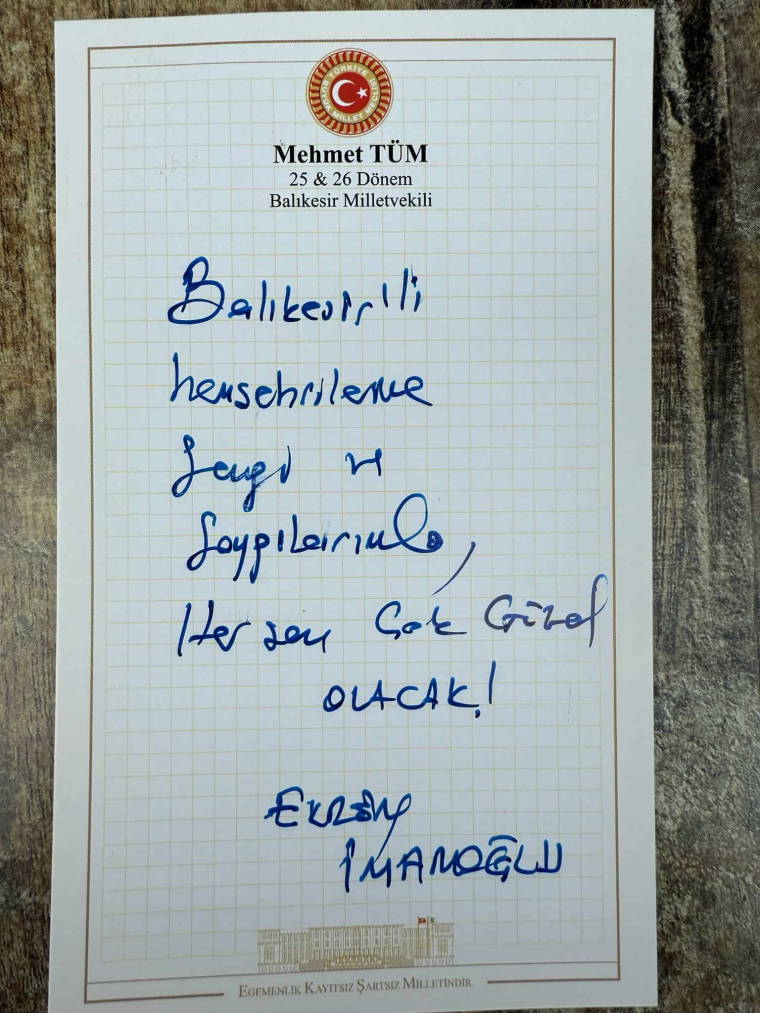 TÜRKİYE BÜYÜK MİLLET MECLİSİ
Mehmet TÜM
25 & 26 Dönem
Balıkesir Milletvekili
Balıkesirlili
hemşehrilerime
Sevgi ve
Saygılarımla,
Her şey Çok Güzel
OLACAK!
EKREM
İMAMOĞLU
EGEMENLİK KAYITSIZ ŞARTSIZ MİLLETİNDİR.